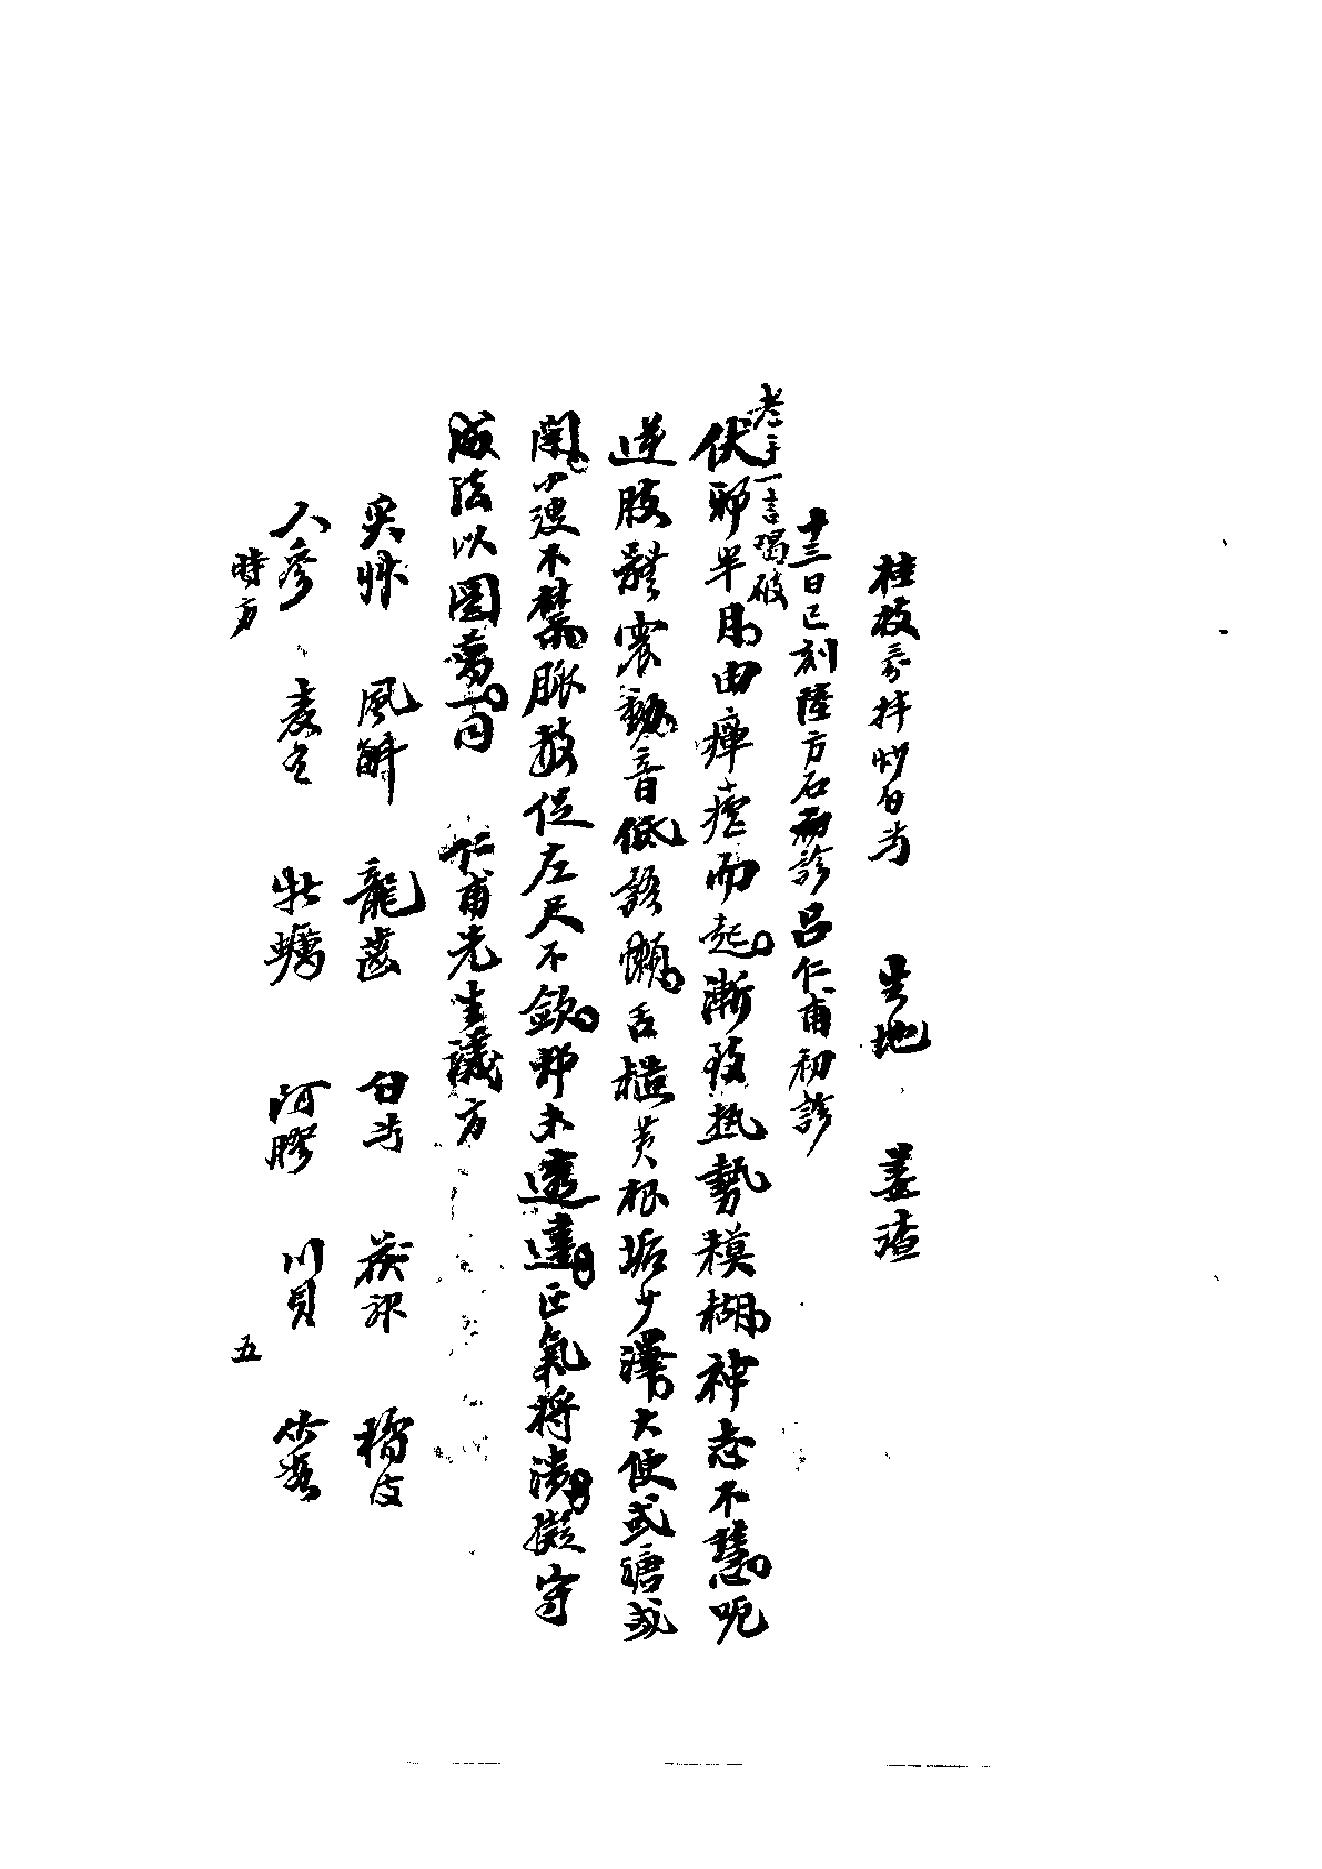 桂枝三分拌炒白芍 生地 姜渣
十三日巳刻陸方石初診 呂仁甫初診
老手一言喝破
伏邪半月由瘅瘧而起漸致熱勢模糊神志不慧呃
逆肢體震動音低語懶舌糙黃根垢少澤大便或瀉或
閉小溲不禁脈數促左尺不斂邪未透達正氣將潰擬守
成法以圖萬一同 仁甫先生議方
吳 風斛 龍齒 白芍 茯神 橘皮
人參 麥冬 牡蠣 阿膠 川貝
時方 五